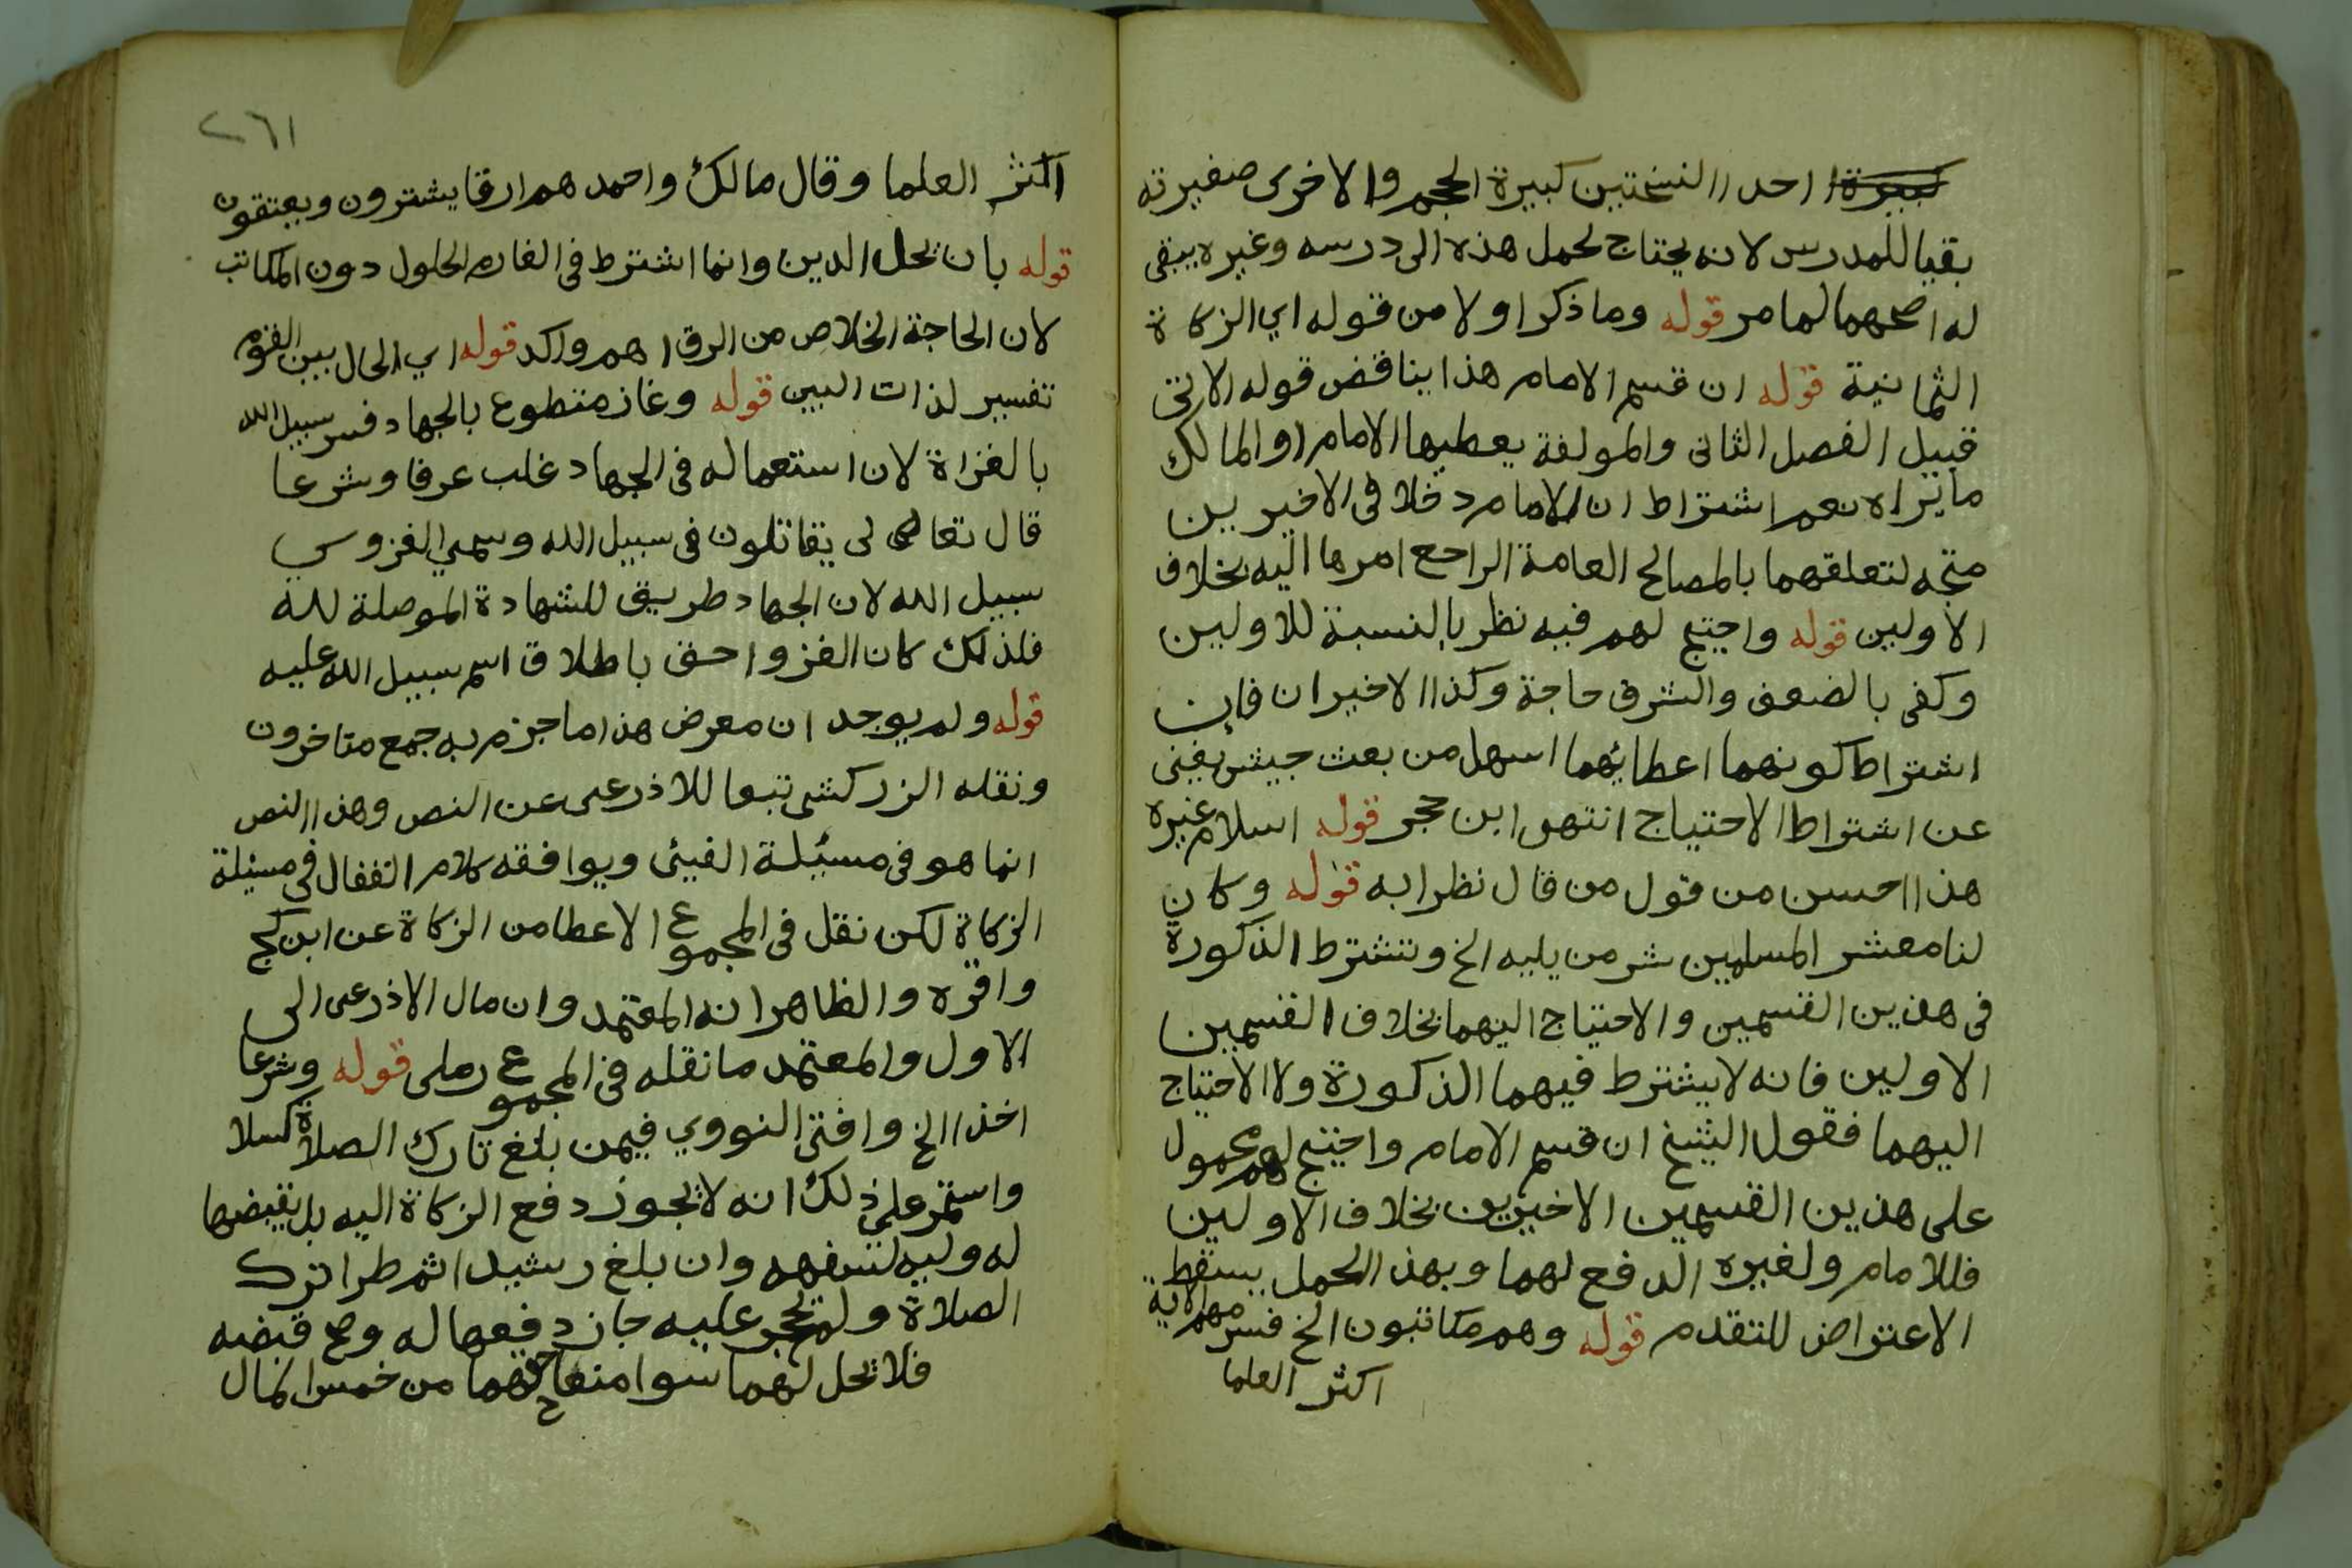 احدا النسختين كبيرة الحجم والاخرى صغيرته
بقيا للمدرس لانه يحتاج لحمل هذه الى درسه وغيره يبقى
له اصحهما لما مر قوله وما ذكر اولا من قوله اي الزكاة
الثمانية قوله ان قسم الامام هذا يناقض قوله الاتى
قبيل الفصل الثانى والمولفة يعطيها الامام او المالك
ما يراه نعم اشتراط ان للامام دخلا فى الاخيرين
متجه لتعلقهما بالمصالح العامة الراجع امرها اليه بخلاف
الاولين قوله واحتيج لهم فيه نظر بالنسبة للاولين
وكفى بالضعف والشرف حاجة وكذا الاخيران فان
اشتراط كونهما اعطائهما اسهل من بعث جيش يغنى
عن اشتراط الاحتياج انتهى ابن حجر قوله اسلام غيره
هذا احسن من قول من قال نظرا به قوله وكان
لنا معشر المسلمين شر من يليه الخ وتشترط الذكورة
فى هذين القسمين والاحتياج اليهما بخلاف القسمين
الاولين فانه لا يشترط فيهما الذكورة ولا الاحتياج
اليهما فقول الشيخ ان قسم الامام واحتيج لهم محمول
على هذين القسمين الاخيرين بخلاف الاولين
فللامام ولغيره الدفع لهما وبهذا الحمل يسقط
الاعتراض المتقدم قوله وهم مكاتبون الخ فسر بهم الاية
اكثر العلما
٢٦١
اكثر العلما وقال مالك واحمد هم ارقا يشترون ويعتقون
قوله بان يحل الدين وانما اشترط فى الغارم الحلول دون المكاتب
لان الحاجة الخلاص من الرق اهم واكد قوله اي الحال بين القوم
تفسير لذات البين قوله وغاز متطوع بالجهاد فسر سبيل الله
بالغزاة لان استعماله فى الجهاد غلب عرفا وشرعا
قال تعالى يقاتلون فى سبيل الله وسمي الغزو
سبيل الله لان الجهاد طريق للشهادة الموصلة لله
فلذلك كان الغزو احق باطلاق اسم سبيل الله عليه
قوله ولم يوجد ان معرض هذا ما جزم به جمع متاخرون
ونقله الزركشى تبعا للاذرعى عن النص وهذا النص
انما هو فى مسئلة الفيئ ويوافقه كلام القفال فى مسئلة
الزكاة لكن نقل فى المجموع الاعطا من الزكاة عن ابن كج
واقره والظاهر انه المعتمد وان مال الاذرعى الى
الاول والمعتمد ما نقله فى المجموع رملى قوله وشرعا
اخذا الخ وافتى النووي فيمن بلغ تارك الصلاة كسلا
واستمر على ذلك انه لا يجوز دفع الزكاة اليه بل يقبضها
له وليه لسفهه وان بلغ رشيدا ثم طرا ترك
الصلاة ولم يحجر عليه جاز دفعها له وصح قبضه
فلا تحل لهما سوا منعا حقهما من خمس المال